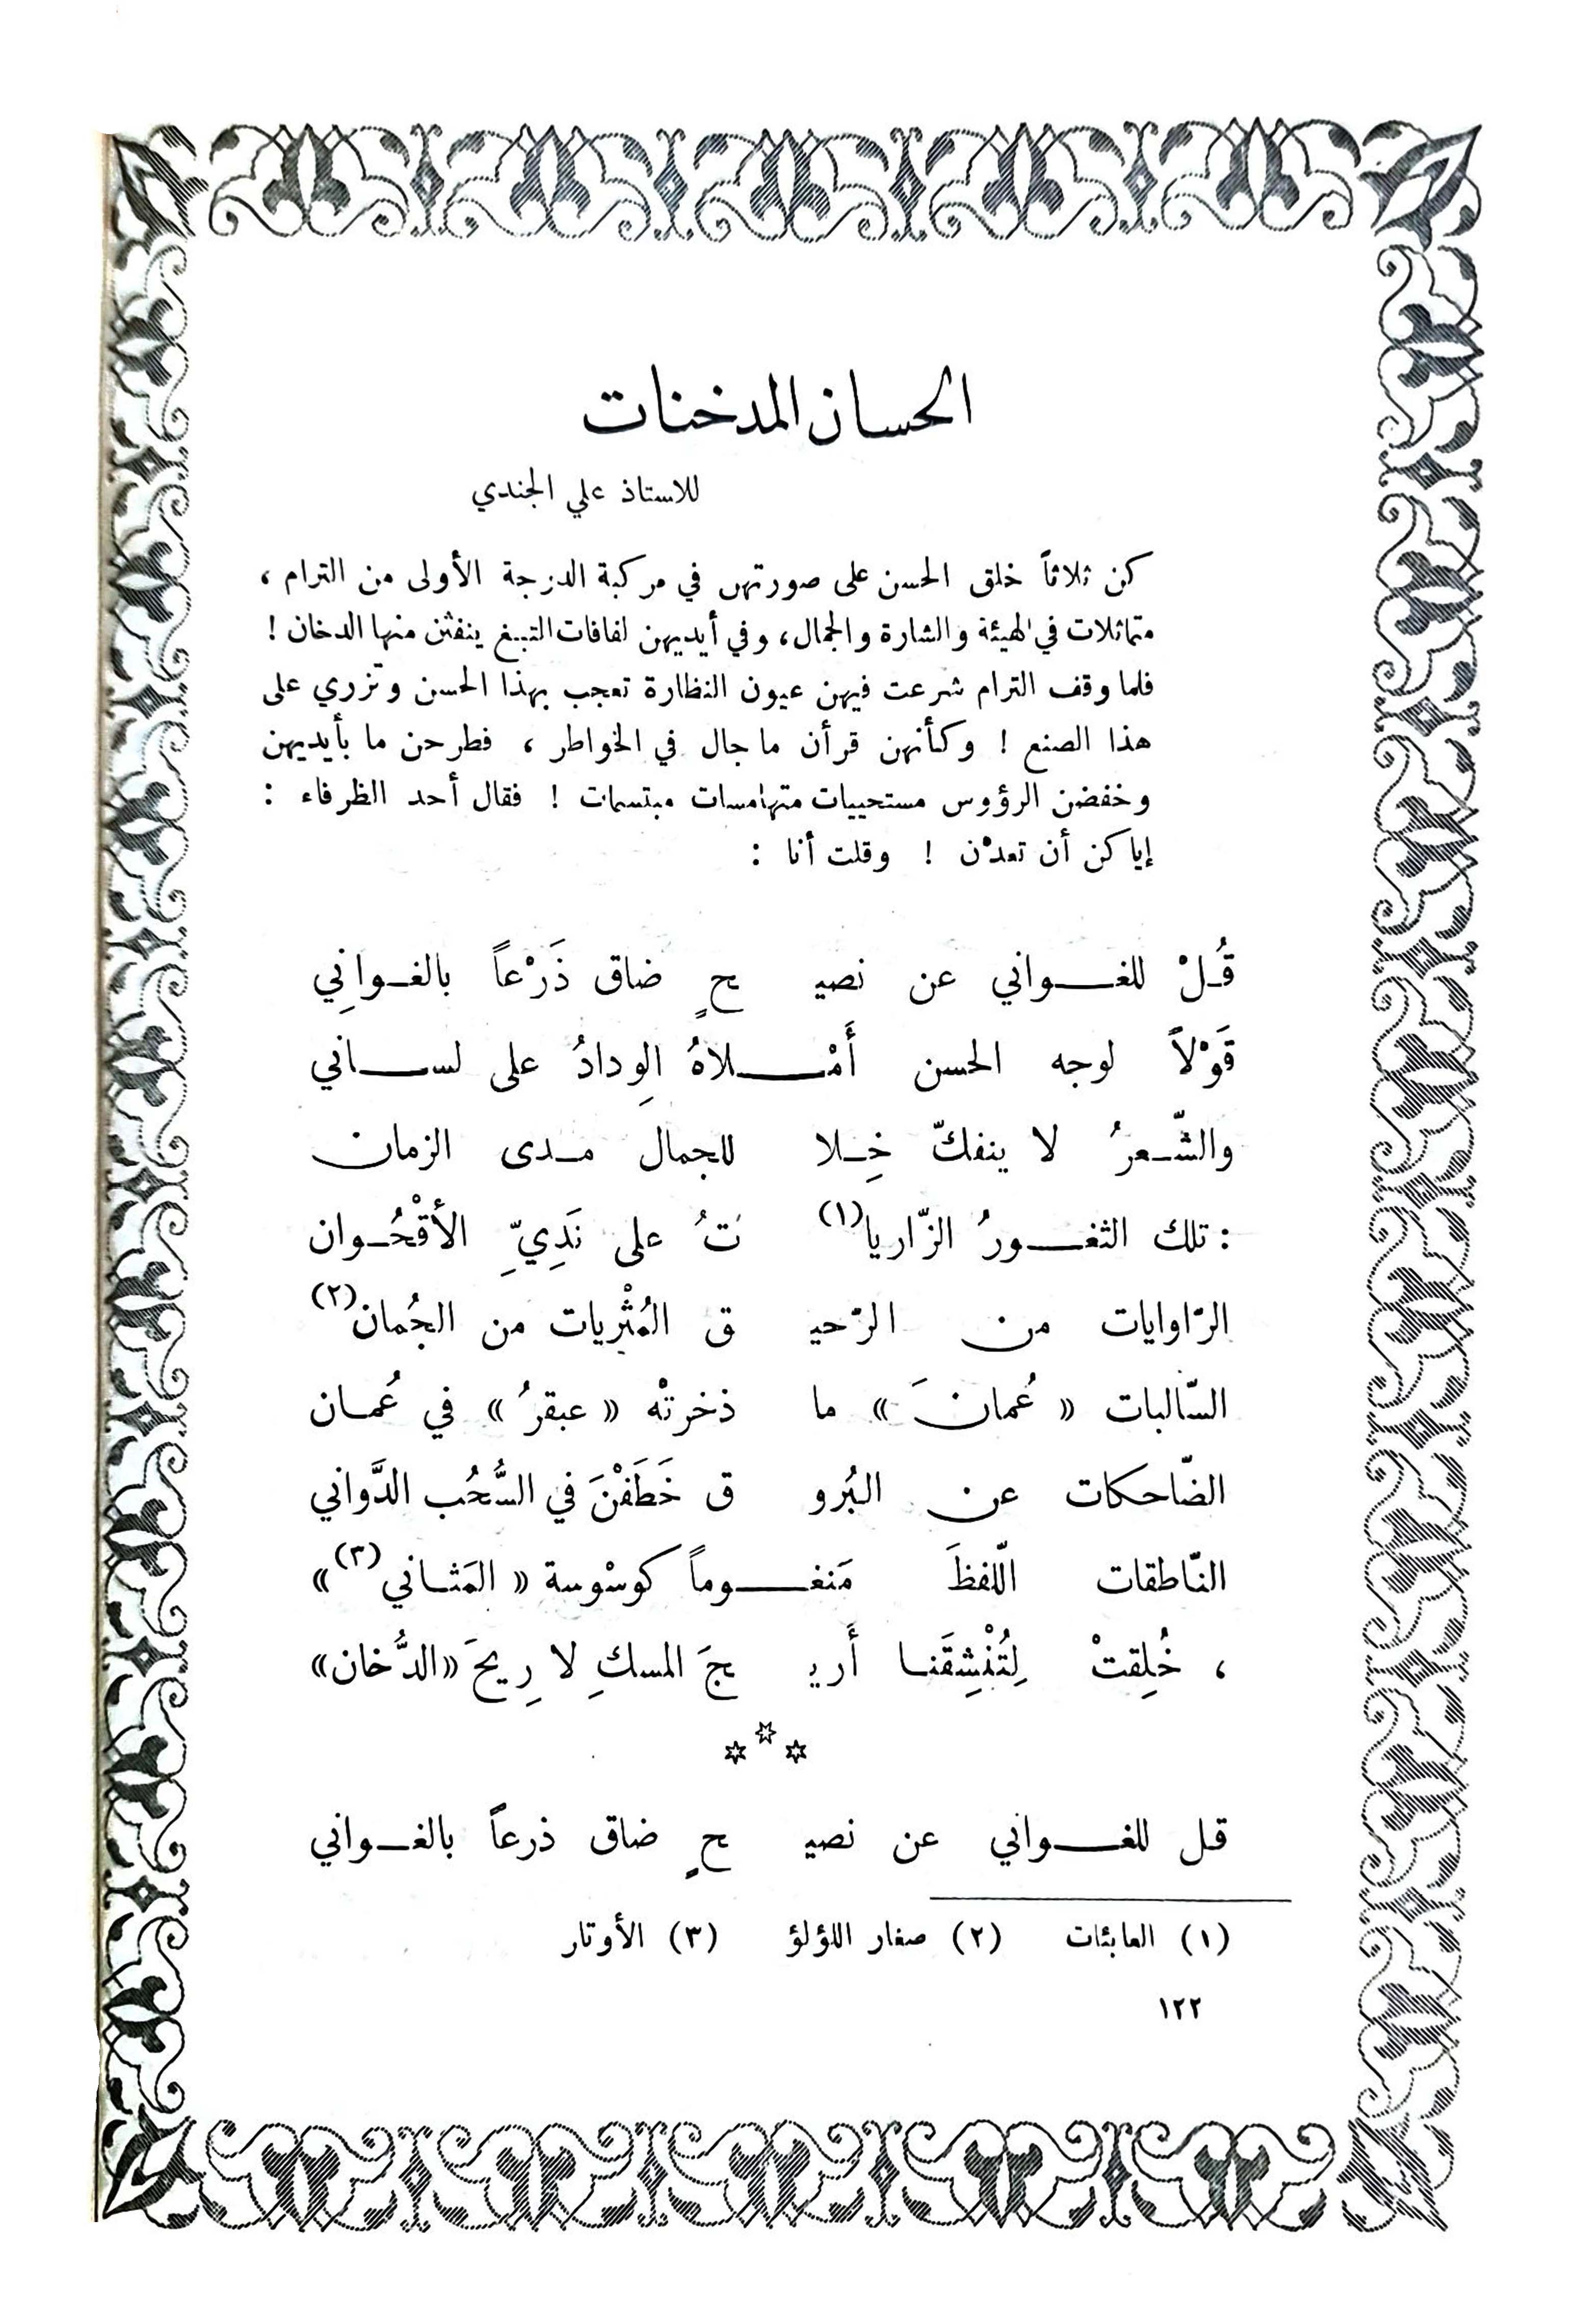 الحسان المدخنات
للاستاذ علي الجندي
كن ثلاثاً خلق الحسن على صورتهن في مركبة الدرجة الأولى من الترام ،
متماثلات في الهيئة والشارة والجمال، وفي أيديهن لفافات التبغ ينفثن منها الدخان !
فلما وقف الترام شرعت فيهن عيون النظارة تعجب بهذا الحسن وتزري على
هذا الصنع ! وكأنهن قرأن ما جال في الخواطر ، فطرحن ما بأيديهن
وخفضن الرؤوس مستحييات متهامسات مبتسمات ! فقال أحد الظرفاء :
إياكن أن تعدْن ! وقلت أنا :
قُلْ للغواني عن نصيحٍ ضاق ذَرْعاً بالغوانِي
قَوْلاً لوجه الحسن أَمْلاهُ الوِدادُ على لساني
والشّعرُ لا ينفكّ خِلا للجمال مدى الزمان
: تلك الثغورُ الزّاريا(١) تُ على نَدِيِّ الأقْحُوان
الرّاوايات من الرّحيق المُثْرِيات من الجُمان(٢)
السّالبات « عُمانَ » ما ذخرتْه « عبقرُ » في عُمان
الضّاحكات عن البُروق خَطَفْنَ في السُّحُب الدَّواني
النّاطقات الّلفظَ مَنغوماً كوسْوسة « المَثاني(٣) »
، خُلِقتْ لِتُنْشِقَنا أَريجَ المسكِ لا رِيحَ «الدُّخان»
***
قل للغواني عن نصيحٍ ضاق ذرعاً بالغواني
(١) العابثات (٢) صغار اللؤلؤ (٣) الأوتار
١٢٢